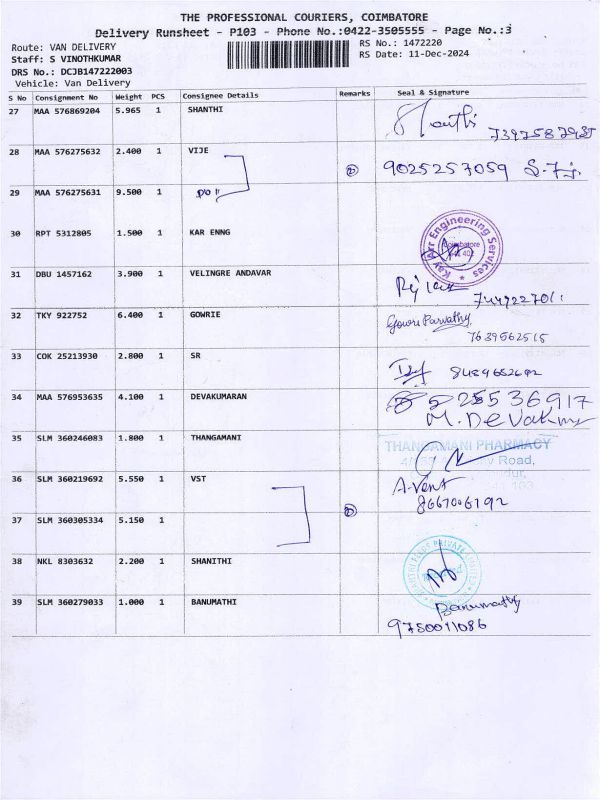 THE PROFESSIONAL COURIERS, COIMBATORE
Delivery Runsheet - P103 - Phone No.:0422-3505555 - Page No.:3
Route: VAN DELIVERY RS No.: 1472220
Staff: S VINOTHKUMAR RS Date: 11-Dec-2024
DRS No.: DCJB147222003
Vehicle: Van Delivery
S No Consignment No Weight PCS Consignee Details Remarks Seal & Signature
27 MAA 576869204 5.965 1 SHANTHI
28 MAA 576275632 2.400 1 VIJE
9025257059
29 MAA 576275631 9.500 1
30 RPT 5312805 1.500 1 KAR ENNG
Kay Arr Engineering Services
Coimbatore
31 DBU 1457162 3.900 1 VELINGRE ANDAVAR
32 TKY 922752 6.400 1 GOWRIE
Gowri Parvathy
7639562515
33 COK 25213930 2.800 1 SR
34 MAA 576953635 4.100 1 DEVAKUMARAN
25536917
35 SLM 360246083 1.800 1 THANGAMANI
THANGAMANI PHARMACY
Road,
36 SLM 360219692 5.550 1 VST
A-Vent
8667006192
37 SLM 360305334 5.150 1
38 NKL 8303632 2.200 1 SHANITHI
PRIVATE LIMITED
39 SLM 360279033 1.000 1 BANUMATHI
Banumathy
9750011086